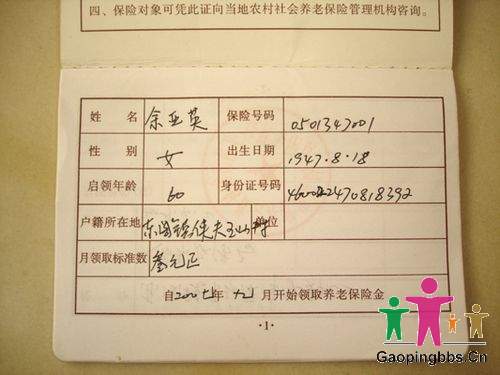 四、保险对象可凭此证向当地农村社会养老保险管理机构咨询。
姓 名 余亚英 保险号码 0501347001
性 别 女 出生日期 1947.8.18
启领年龄 60 身份证号码
户籍所在地 单位
月领取标准数 叁元正
自200七年 月开始领取养老保险金
·1·
Gaopingbbs.Cn